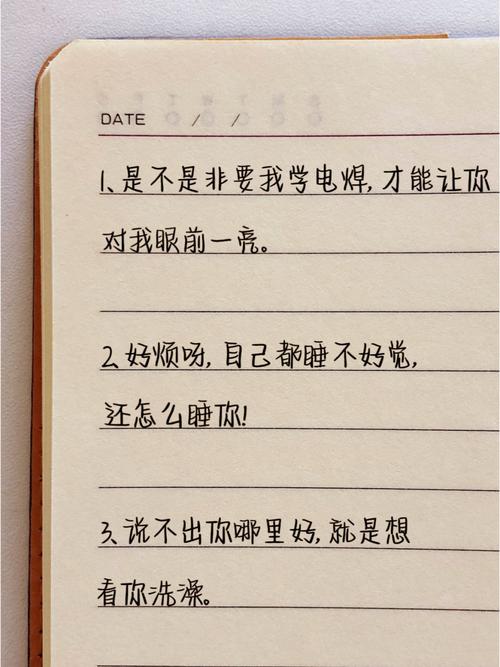 DATE / /
1、是不是非要我学电焊,才能让你
对我眼前一亮。
2、好烦呀,自己都睡不好觉,
还怎么睡你!
3、说不出你哪里好,就是想
看你洗澡。